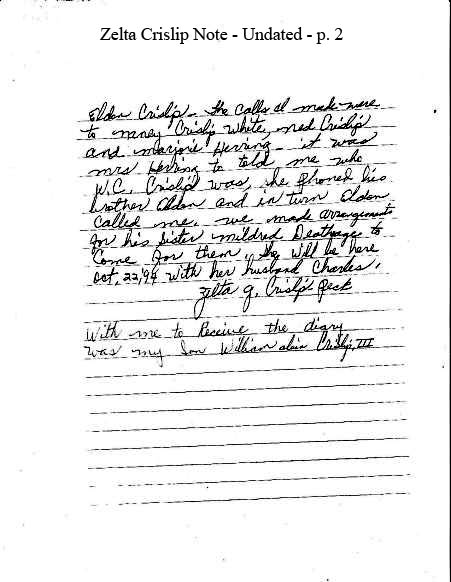 Zelta Crislip Note - Undated - p. 2
Eldon Crislip - the calls al made were
to nancy Crislip White, ned Crislip
and marjorie Herring - it was
mrs Herring to told me who
W.C. Crislip was, she phoned his
brother Eldon and in turn Eldon
called me. we made arrangements
for his Sister mildred Deathrage to
Come for them, she will be here
Oct, 22, 94 With her husband Charles.
Zelta G. Crislip Peck
With me to Receive the diary
was my Son William alvin Crislip, III